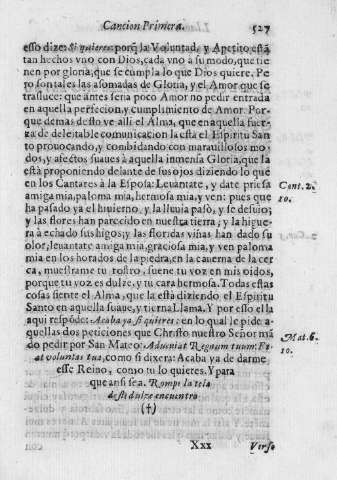 Cancion Primera. 527
esso dize: Si quieres: porq̃ la Voluntad, y Apetito està
tan hechos vno con Dios, cada vno a su modo, que tie
nen por gloria, que se cumpla lo que Dios quiere. Pe
ro son tales las asomadas de Gloria, y el Amor que se
trasluce: que antes seria poco Amor no pedir entrada
en aquella perfecion, y cumplimiento de Amor. Por-
que demas desto ve alli el Alma, que en aquella fuer-
za de deleitable comunicacion la està el Espiritu San
to prouocando, y combidando con marauillosos mo-
dos, y afectos suaues à aquella inmensa Gloria, que la
està proponiendo delante de sus ojos diziendo lo que
en los Cantares à la Esposa: Leuantate, y date priesa
amiga mia, paloma mia, hermosa mia, y ven: pues que
ha pasado ya el hiuierno, y la lluuia pasò, y se desuio;
y las flores han parecido en nuestra tierra; y la higue
ra à echado sus higos; y las floridas viñas han dado su
olor, leuantate amiga mia, graciosa mia, y ven paloma
mia en los horados de la piedra, en la cauerna de la cer
ca, muestrame tu rostro, suene tu voz en mis oidos,
porque tu voz es dulze, y tu cara hermosa. Todas estas
cosas siente el Alma, que la està diziendo el Espiritu
Santo en aquella suaue, y tierna Llama. Y por esso ella
aqui respõde: Acaba ya, si quieres: en lo qual le pide a-
quellas dos peticiones que Christo nuestro Señor mã
dò pedir por San Mateo: Adueniat Regnum tuum: Fi-
at voluntas tua, como si dixera: Acaba ya de darme
esse Reino, como tu lo quieres. Y para
que ansi sea. Rompe la tela
deste dulze encuentro
(†)
Cant. 2.
10.
Mat. 6.
10.
Xxx Verso